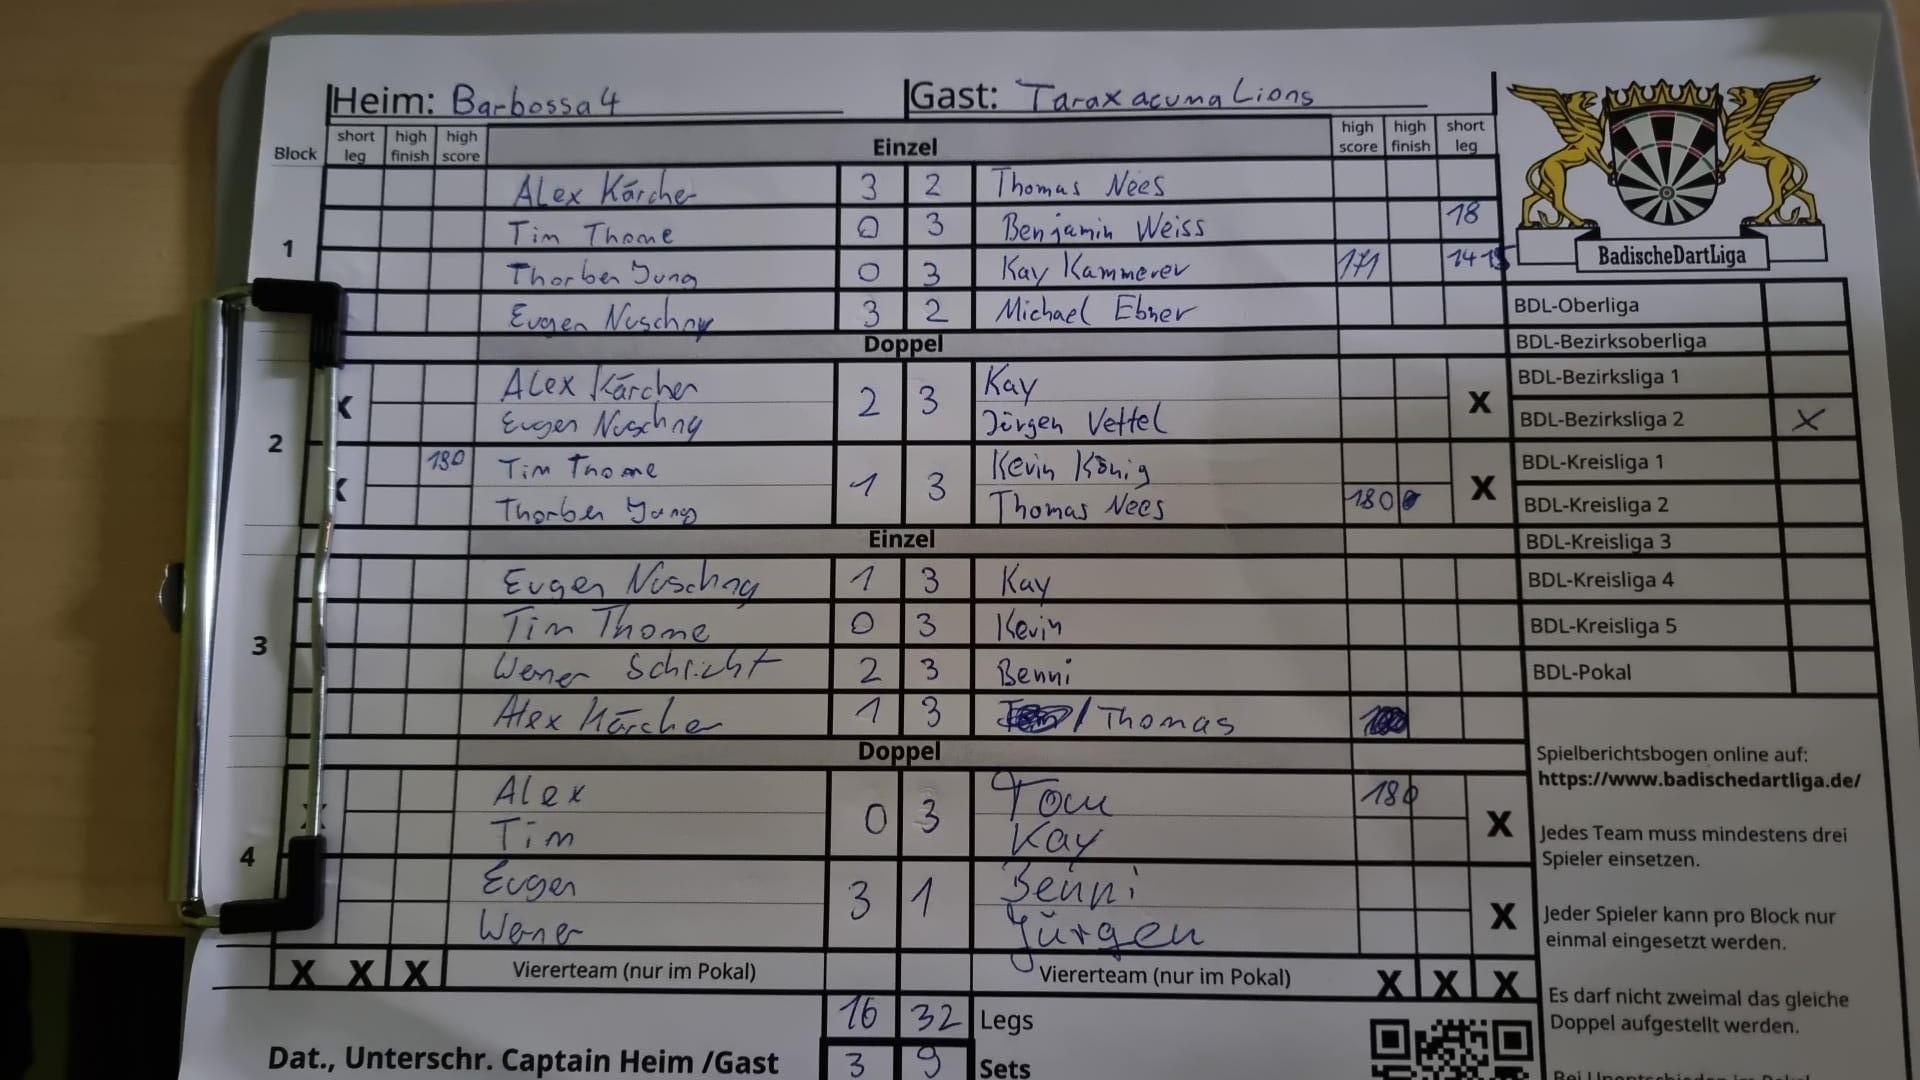 Heim: Barbossa 4 Gast: Taraxacuma Lions
Block short leg high finish high score Einzel high score high finish short leg
1
Alex Kärcher 3 2 Thomas Nees
Tim Thome 0 3 Benjamin Weiss 18
Thorben Jung 0 3 Kay Kammerer 171 14 15
Eugen Nuschny 3 2 Michael Ebner
Doppel
2
X Alex Kärcher 2 3 Kay X
Eugen Nuschny Jürgen Vettel
X 180 Tim Thome 1 3 Kevin König X
Thorben Jung Thomas Nees 180
Einzel
3
Eugen Nuschny 1 3 Kay
Tim Thome 0 3 Kevin
Werner Schlicht 2 3 Benni
Alex Kärcher 1 3 / Thomas
Doppel
4
X Alex 0 3 Tom 180 X
Tim Kay
Eugen 3 1 Benni X
Werner Jürgen
X X X Viererteam (nur im Pokal) Viererteam (nur im Pokal) X X X
16 32 Legs
Dat., Unterschr. Captain Heim /Gast 3 9 Sets
BadischeDartLiga
BDL-Oberliga
BDL-Bezirksoberliga
BDL-Bezirksliga 1
BDL-Bezirksliga 2 X
BDL-Kreisliga 1
BDL-Kreisliga 2
BDL-Kreisliga 3
BDL-Kreisliga 4
BDL-Kreisliga 5
BDL-Pokal
Spielberichtsbogen online auf:
https://www.badischedartliga.de/
Jedes Team muss mindestens drei
Spieler einsetzen.
Jeder Spieler kann pro Block nur
einmal eingesetzt werden.
Es darf nicht zweimal das gleiche
Doppel aufgestellt werden.